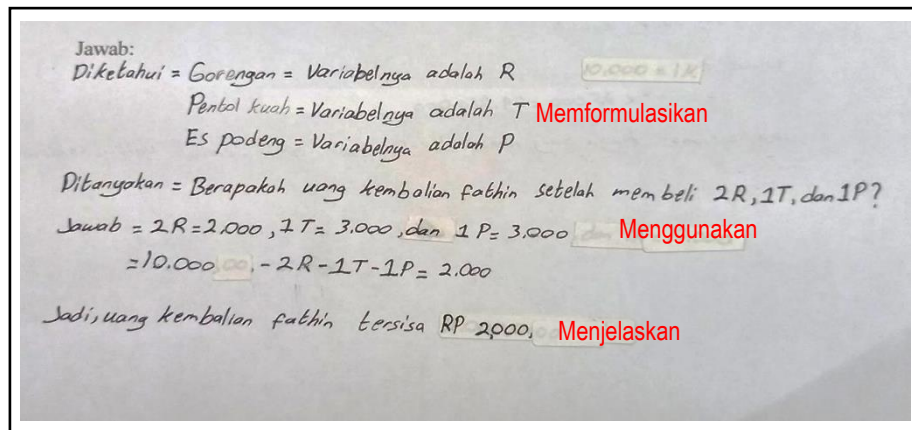 Jawab:
Diketahui = Gorengan = Variabelnya adalah R
Pentol kuah = Variabelnya adalah T Memformulasikan
Es podeng = Variabelnya adalah P
Ditanyakan = Berapakah uang kembalian fathin setelah membeli 2R, 1T, dan 1P?
Jawab = 2R = 2.000, 1T = 3.000, dan 1P = 3.000 Menggunakan
= 10.000 - 2R - 1T - 1P = 2.000
Jadi, uang kembalian fathin tersisa RP 2000, Menjelaskan